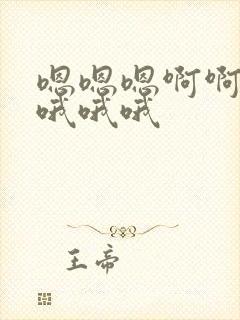 嗯嗯嗯啊啊
哦哦哦
王帝